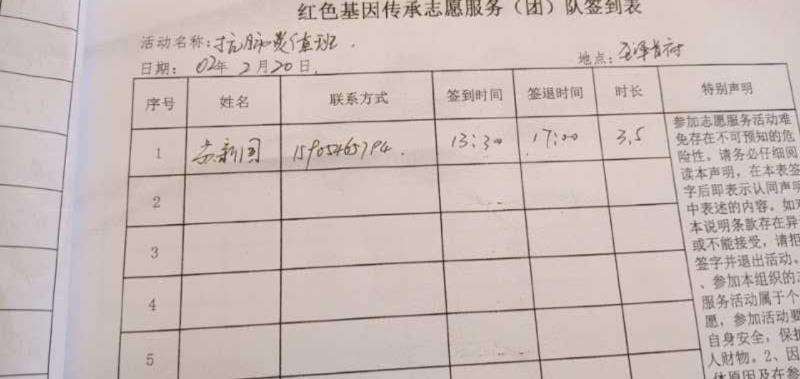 红色基因传承志愿服务（团）队签到表
活动名称：抗肺炎值班.
日期： 02年 2月20日. 地点：
序号 姓名 联系方式 签到时间 签退时间 时长 特别声明
1 苏新国 15905465794. 13:30 17:00 3.5
2
3
4
5
参加志愿服务活动难
免存在不可预知的危
险性。请务必仔细阅
读本声明，在本表签
字后即表示认同声明
中表述的内容。如对
本说明条款存在异
或不能接受，请拒
签字并退出活动。
、参加本组织的
服务活动属于个
愿，参加活动要
自身安全，保护
人财物。2、因
体原因及在参